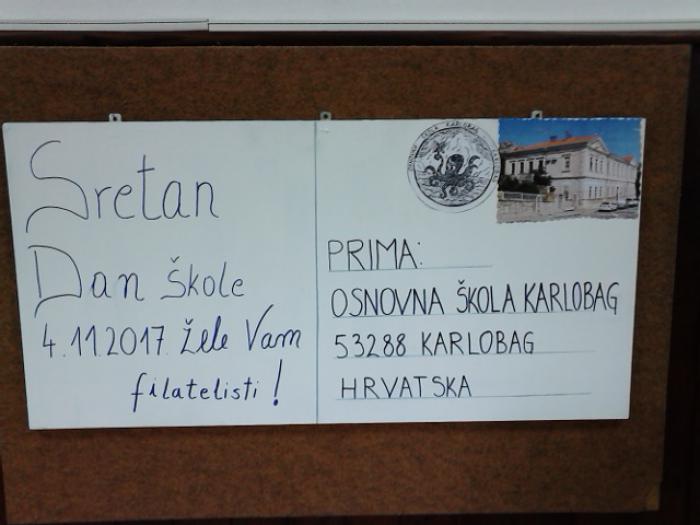 Sretan
Dan Škole
4.11.2017. žele Vam
filatelisti!
OSNOVNA ŠKOLA KARLOBAG
PRIMA:
OSNOVNA ŠKOLA KARLOBAG
53288 KARLOBAG
HRVATSKA